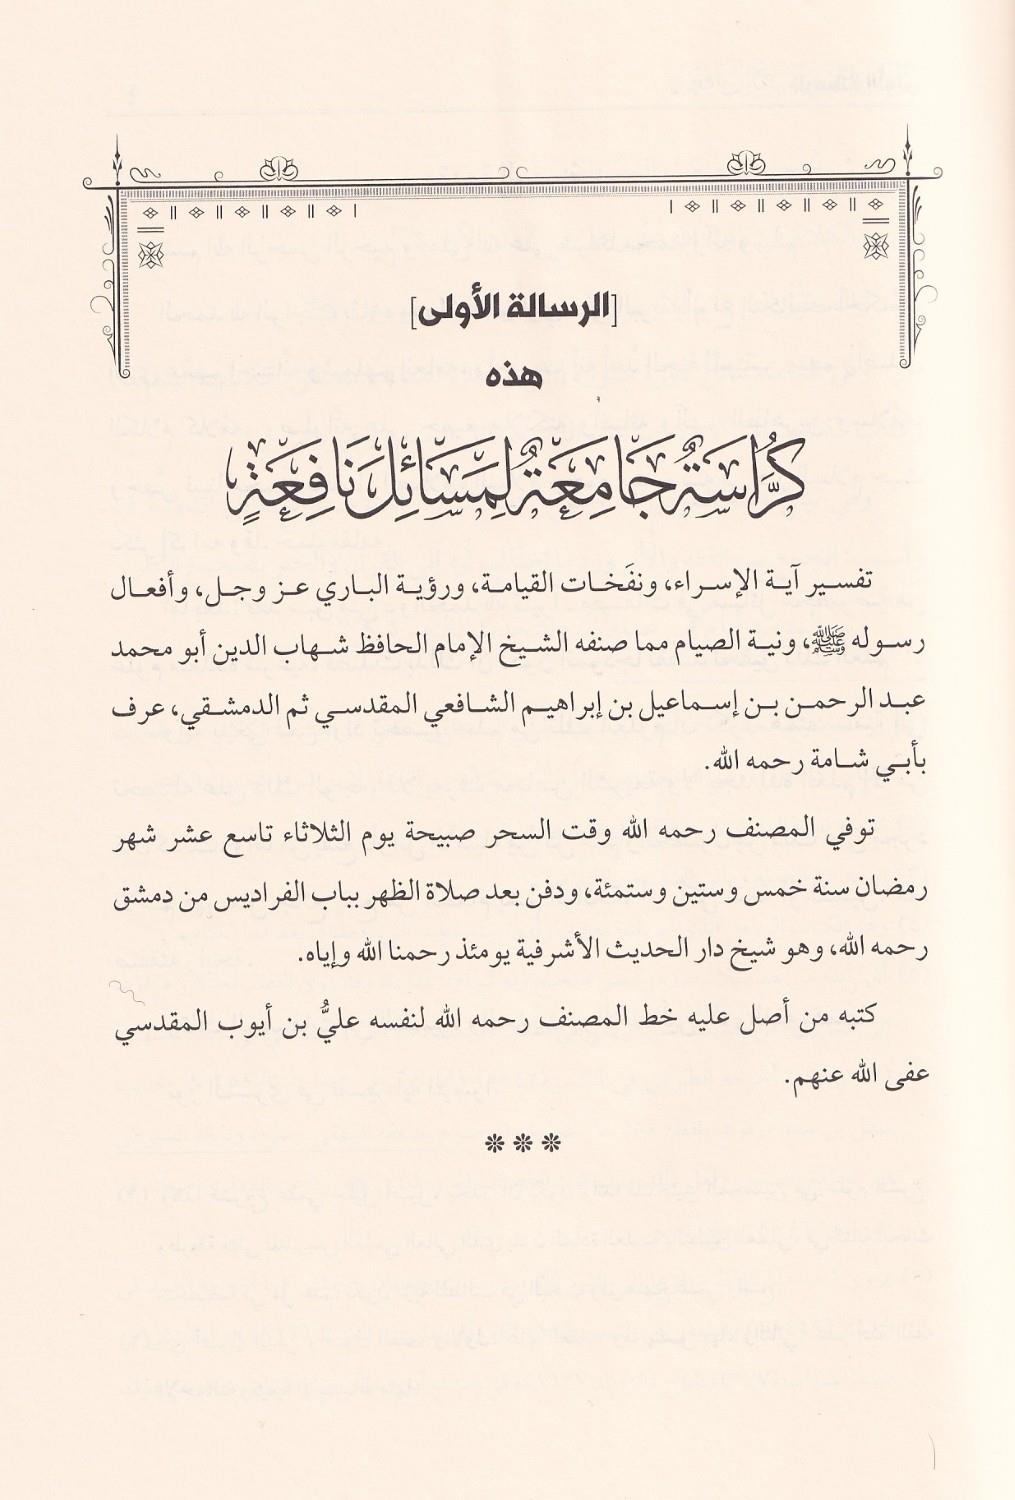 [الرسالة الأولى]
هذه
كُرَّاسَةٌ جَامِعَةٌ لِمَسَائِلَ نَافِعَةٍ
تفسير آية الإسراء، ونفَخات القيامة، ورؤية الباري عز وجل، وأفعال
رسوله ﷺ، ونية الصيام مما صنفه الشيخ الإمام الحافظ شهاب الدين أبو محمد
عبد الرحمن بن إسماعيل بن إبراهيم الشافعي المقدسي ثم الدمشقي، عرف
بأبي شامة رحمه الله.
توفي المصنف رحمه الله وقت السحر صبيحة يوم الثلاثاء تاسع عشر شهر
رمضان سنة خمس وستين وستمئة، ودفن بعد صلاة الظهر بباب الفراديس من دمشق
رحمه الله، وهو شيخ دار الحديث الأشرفية يومئذ رحمنا الله وإياه.
كتبه من أصل عليه خط المصنف رحمه الله لنفسه عليُّ بن أيوب المقدسي
عفى الله عنهم.